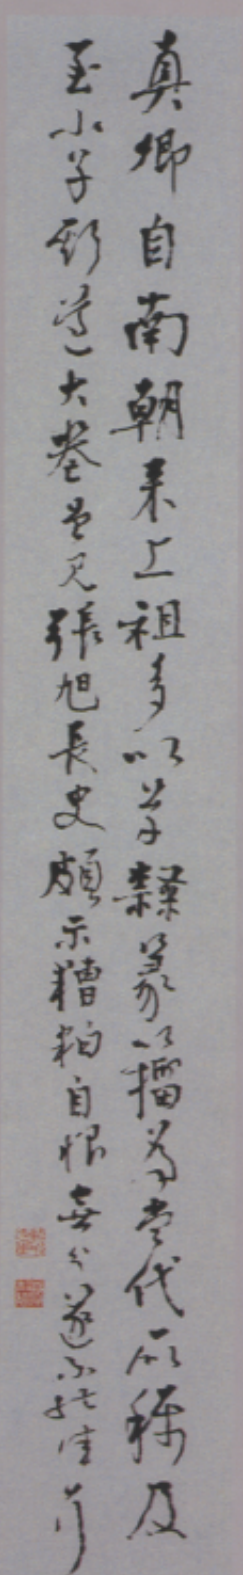 真卿自南朝来上祖多以草隸篆籀為當代所稱及
至小子斯道大喪曾見張旭長史頗示糟粕自恨無分遂不能佳耳